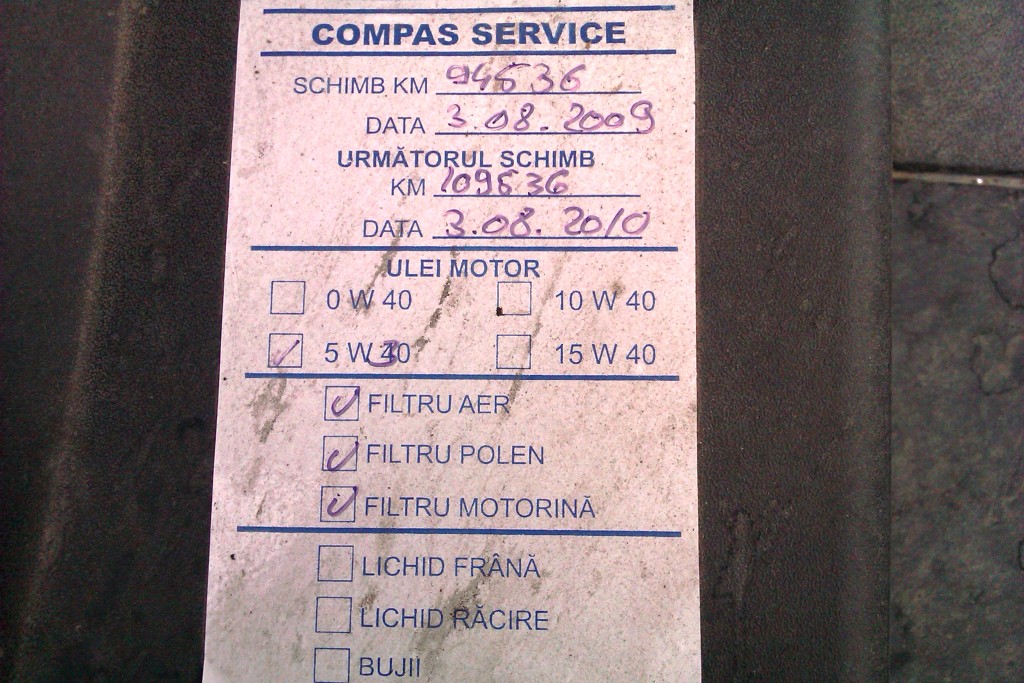 COMPAS SERVICE
SCHIMB KM 94636
DATA 3.08.2009
URMĂTORUL SCHIMB
KM 109636
DATA 3.08.2010
ULEI MOTOR
0 W 40 10 W 40
5 W 30 15 W 40
FILTRU AER
FILTRU POLEN
FILTRU MOTORINĂ
LICHID FRÂNĂ
LICHID RĂCIRE
BUJII